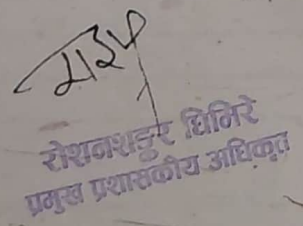 रोशनशङ्कर घिमिरे
प्रमुख प्रशासकीय अधिकृत